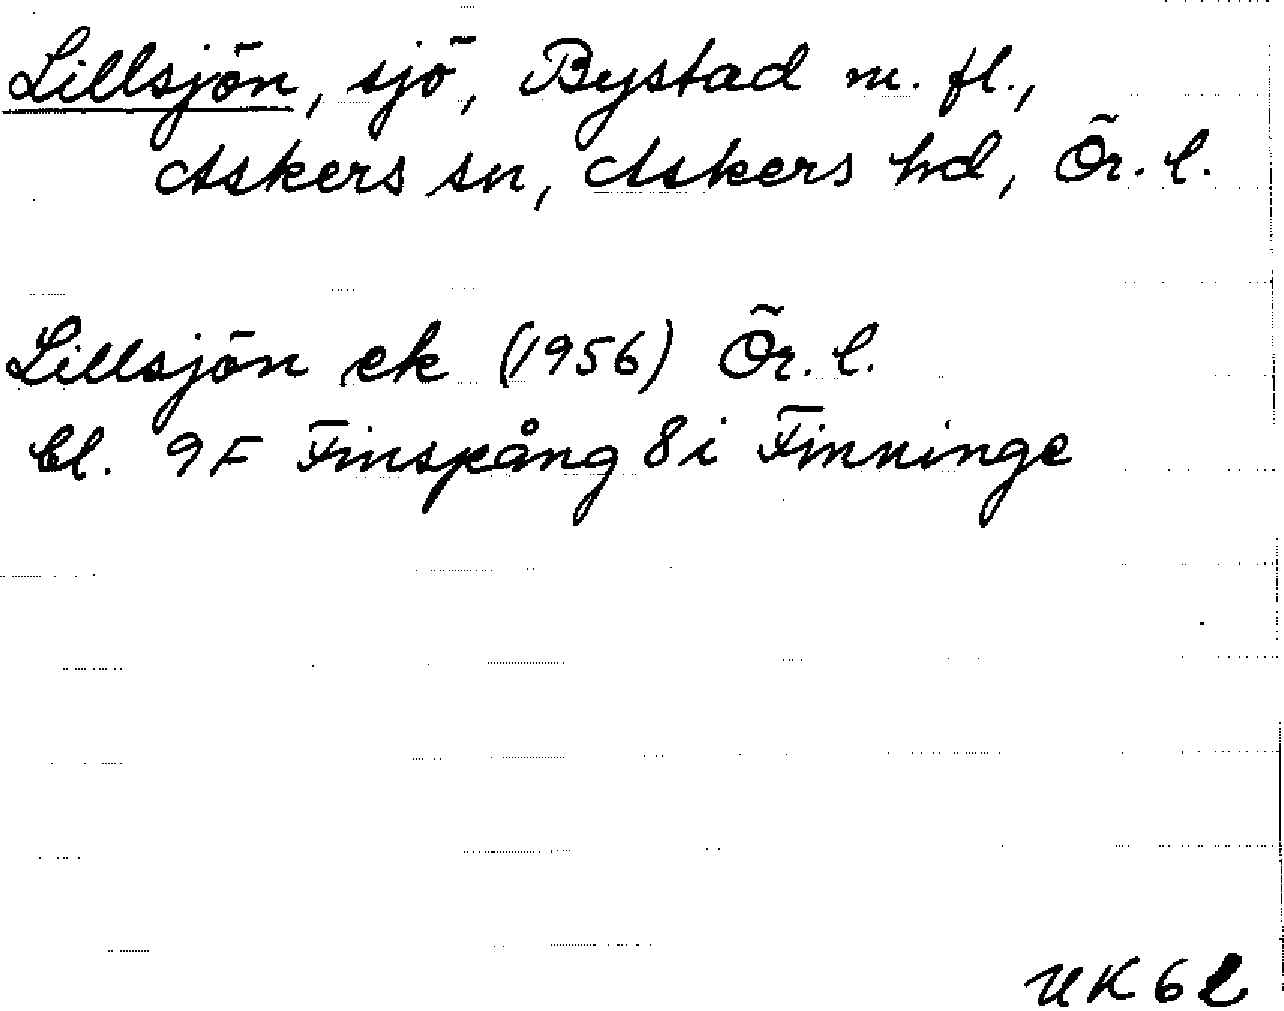 Lillsjön, sjö, Bystad m. fl.,
Askers sn, Askers hd, Ör. l.
Lillsjön ek (1956) Ör. l.
bl. 9F Finspång 8i Finninge
UK62